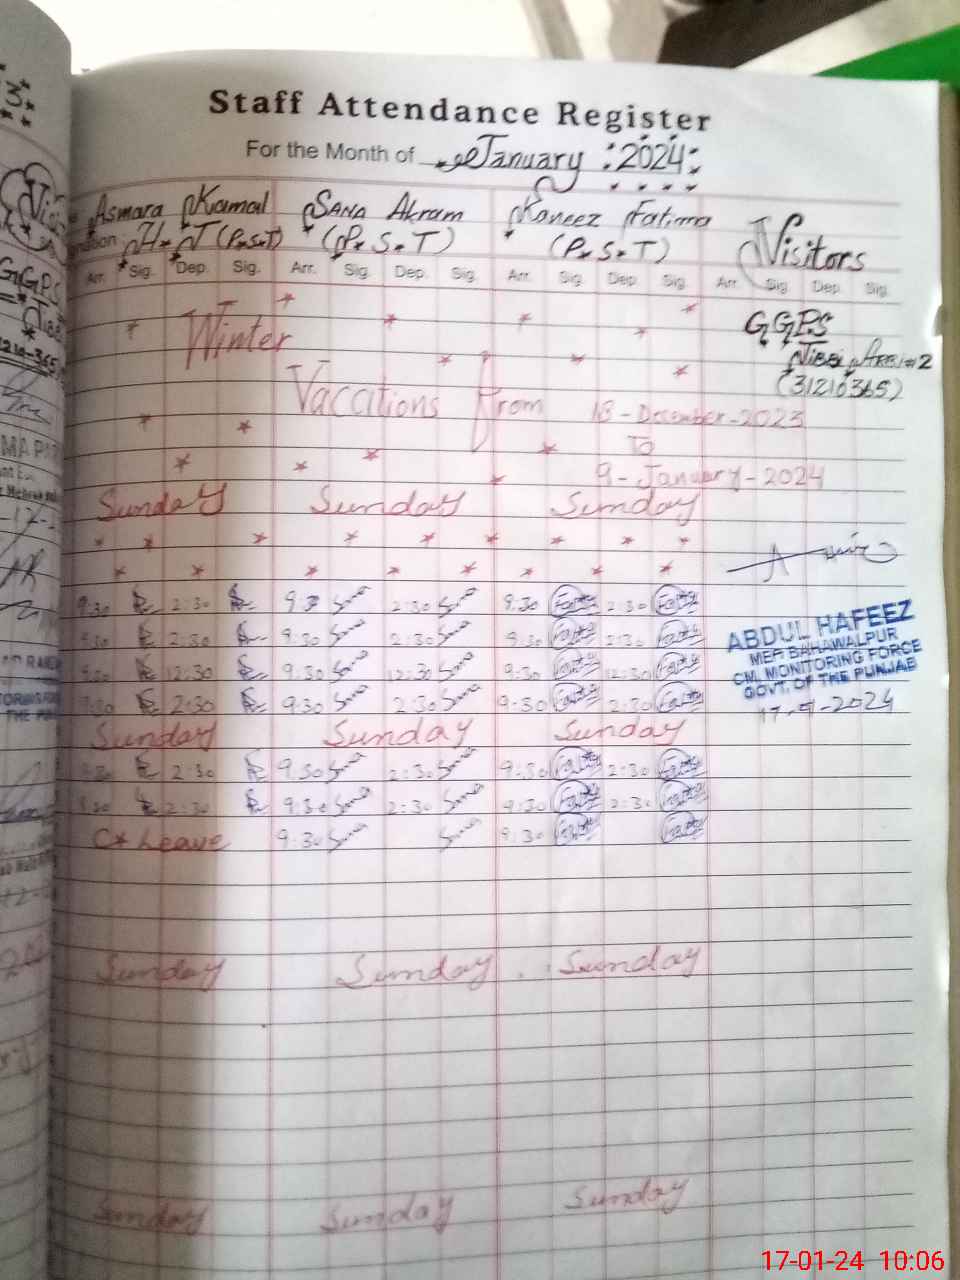 Staff Attendance Register
For the Month of January 2024
Asmara Kamal SANA Akram Kaneez Fatima
H.T (P.S.T) (P.S.T) (P.S.T) Visitors
Arr. Sig. Dep. Sig. Arr. Sig. Dep. Sig. Arr. Sig. Dep. Sig. Arr. Sig. Dep. Sig.
GGPS
Winter
(31210365)
Vacations From 18-December-2023
To
9-January-2024
Sunday Sunday Sunday
9:30 2:30 9:30 Sana 2:30 Sana 9:30 Fatima 2:30 Fatima
9:30 2:30 9:30 Sana 2:30 Sana 9:30 Fatima 2:30 Fatima
9:30 12:30 9:30 Sana 12:30 Sana 9:30 Fatima 12:30 Fatima
9:30 2:30 9:30 Sana 2:30 Sana 9:30 Fatima 2:30 Fatima
ABDUL HAFEEZ
MEA BAHAWALPUR
CM, MONITORING FORCE
GOVT. OF THE PUNJAB
17-01-2024
Sunday Sunday Sunday
9:30 2:30 9:30 Sana 2:30 Sana 9:30 Fatima 2:30 Fatima
9:30 2:30 9:30 Sana 2:30 Sana 9:30 Fatima 2:30 Fatima
C* Leave 9:30 Sana Sana 9:30 Fatima Fatima
Sunday Sunday Sunday
Sunday Sunday Sunday
17-01-24 10:06